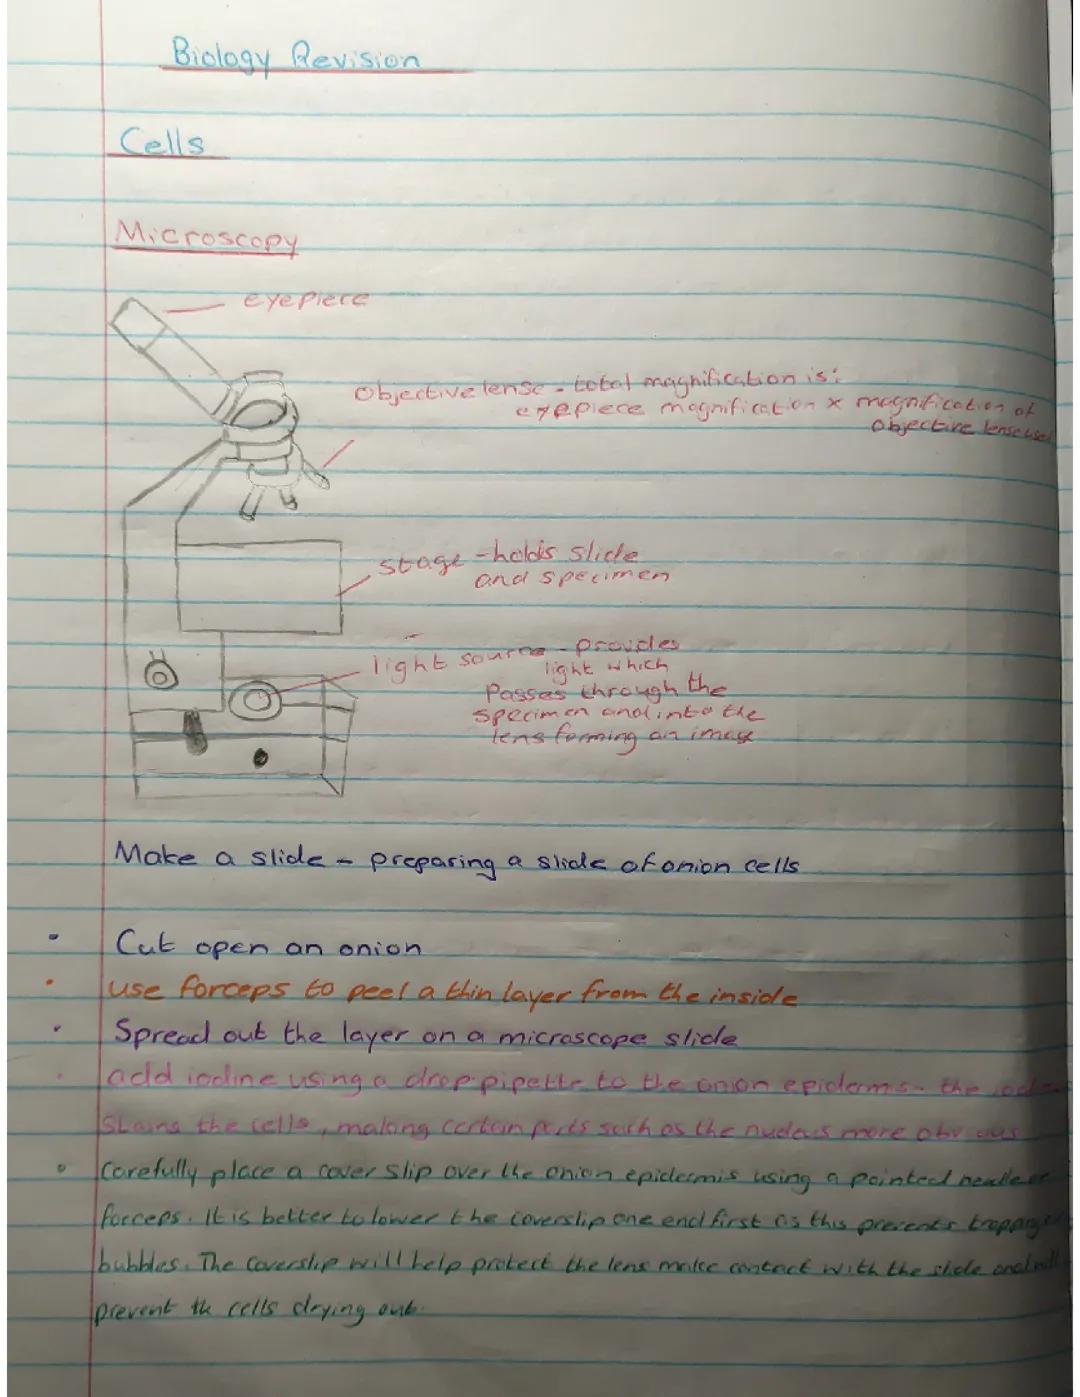 Biology Revision
Cells
Microscopy
eyepiece
Objective lense - total magnification is:
eyepiece magnification x magnification of
objective lense used
stage - holds slide
and specimen
light source - provides
light which
Passes through the
specimen and into the
lens forming an image
Make a slide - preparing a slide of onion cells
• Cut open an onion
• use forceps to peel a thin layer from the inside
• Spread out the layer on a microscope slide
• add iodine using a drop pipette to the onion epidermis - the
stains the cells, making certain parts such as the nucleus more obvious
• Carefully place a cover slip over the onion epidermis using a pointed needle or
forceps. It is better to lower the coverslip one end first as this prevents
bubbles. The coverslip will help protect the lens make contact with the slide and
prevent the cells drying out.